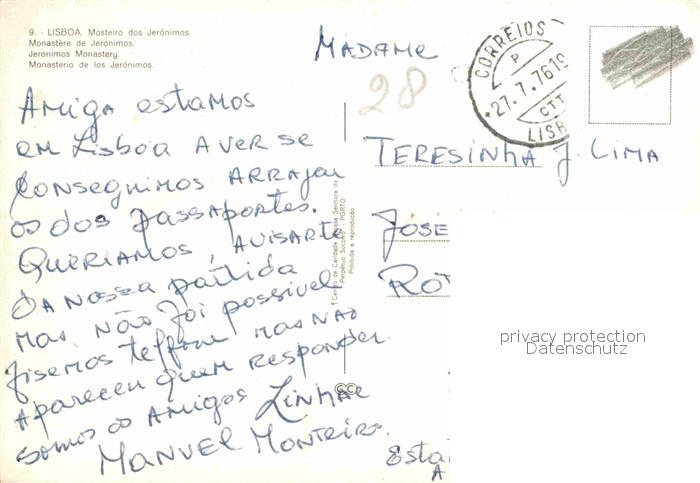 9. - LISBOA. Mosteiro dos Jerónimos.
Monastère de Jerónimos.
Jeronimos Monastery.
Monasterio de los Jerónimos.
AMIGA ESTAMOS
EM LISBOA A VER SE
CONSEGUIMOS ARRAJAR
OS DOS PASSAPORTES.
QUERIAMOS, AVISARTE
DA NOSSA PARTIDA
MAS NÃO FOI POSSIVEL
FISEMOS MAS NÃO
APARECEU QUEM RESPONDER
SOMOS OS AMIGOS
MANUEL MONTEIRO.
Centro de Caridade Nossa Senhora do
Perpétuo Socorro - PORTO
Proibida a reprodução
MADAME
28
CORREIOS
P
27.7.7619
CTT
LISB
TERESINHA J. LIMA
JOSE
ROT
privacy protection
Datenschutz
Esta
A